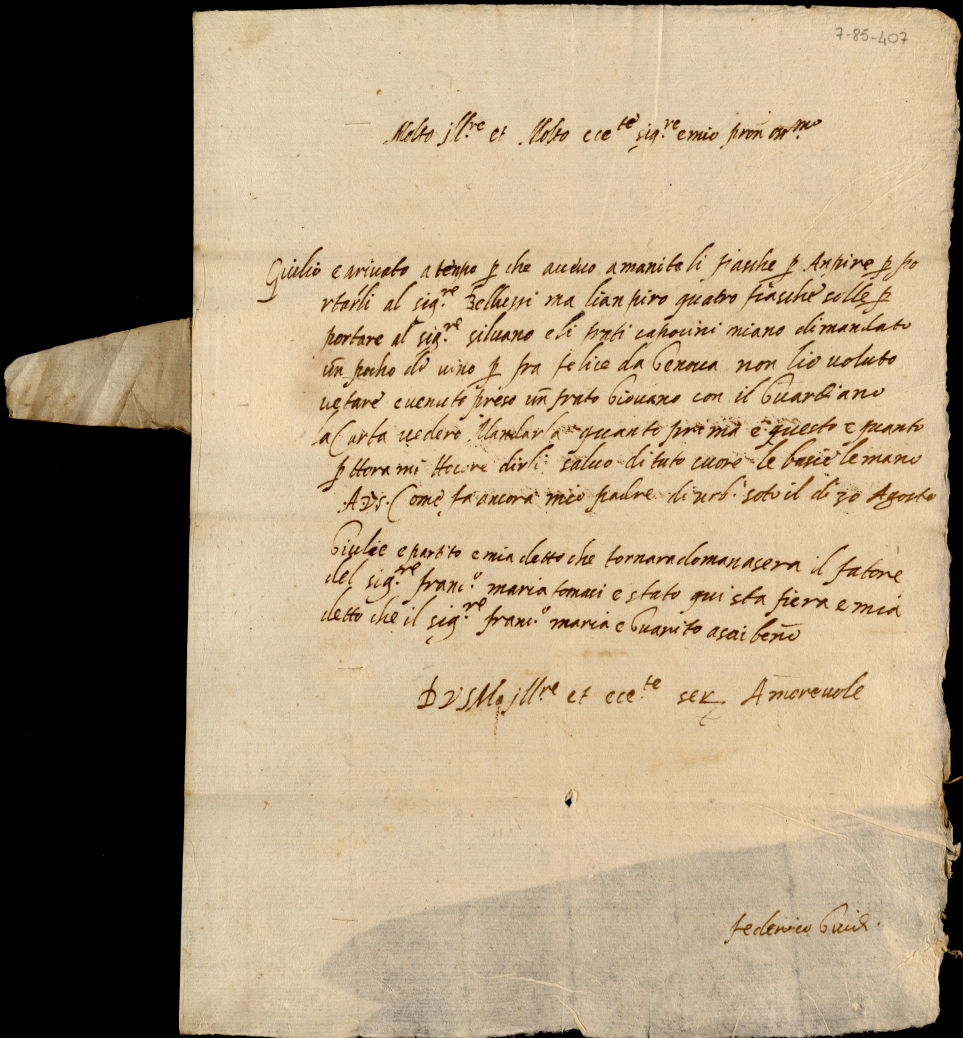 7-85-407
Molto Jll.re et Molto ece.te sig.re e mio pron oss.mo
Giulio e arivato a tenpo p che avevo amanite li fiasche p Anpire p po
rtarli al sig.re Bellucci ma li anpiro quatro fiasche solle p
portare al sig.re silvano e li frati capocini miano dimandato
un pocho di vino p fra felice da Genova non lio voluto
vetare e venuto preso un frato Giovano con il Guardiano
la Carta vedero Mandarla quanto prima e questo e quanto
p ttora mi dirli salvo di tuto cuore le bacio le mano
A V S. Come fa ancora mio padre di urb.o soto il di 30 Agosto
Giulio e partito e mia detto che tornara domanasera il fatore
del sig.re franc.o maria tomasi e stato qui sta fiera e mia
detto che il sig.re franc.o maria e Guarito asai beno
D V S Mo Jll.re et ece.te ser. Amorevole
federico Guidi